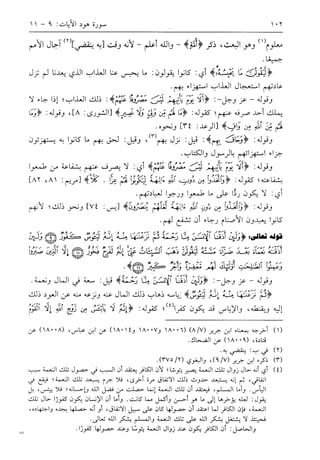 ١٠٢ سورة هود الآيات: ٩ - ١١
معلوم(١) وهو البعث، ذكر ﴿أُمَّةٍ﴾ - والله أعلم - لأنه وقت [به ينقضي](٢) آجال الأمم
جميعًا.
﴿لَّيَقُولُنَّ مَا يَحْبِسُهُۥٓ﴾ أي: كانوا يقولون: ما يحبس عنا العذاب الذي يعدنا لم تزل
عادتهم استعجال العذاب استهزاء بهم.
وقوله - عز وجل-: ﴿أَلَا يَوْمَ يَأْتِيهِمْ لَيْسَ مَصْرُوفًا عَنْهُمْ﴾: ذلك العذاب؛ إذا جاء لا
يملك أحد صرفه عنهم؛ كقوله: ﴿مَا لَهُم مِّن وَلِيٍّ وَلَا نَصِيرٍ﴾ [الشورى: ٨]، وقوله: ﴿وَمَا
لَهُم مِّنَ ٱللَّهِ مِن وَاقٍ﴾ [الرعد: ٣٤] ونحوه.
وقوله: ﴿وَحَاقَ بِهِم﴾ قيل: نزل بهم(٣)، وقيل: لحق بهم ما كانوا به يستهزئون
جزاء استهزائهم بالرسول والكتاب.
وقوله: ﴿أَلَا يَوْمَ يَأْتِيهِمْ لَيْسَ مَصْرُوفًا عَنْهُمْ﴾ أي: لا يصرف عنهم بشفاعة من طمعوا
بشفاعته؛ كقوله: ﴿وَٱتَّخَذُوا۟ مِن دُونِ ٱللَّهِ ءَالِهَةً لِّيَكُونُوا۟ لَهُمْ عِزًّا . كَلَّا﴾ [مريم: ٨١، ٨٢]
أي: لا يكون ردًّا على ما طمعوا ورجوا لعبادتهم.
وقوله: ﴿وَٱتَّخَذُوا۟ مِن دُونِ ٱللَّهِ ءَالِهَةً لَّعَلَّهُمْ يُنصَرُونَ﴾ [يس: ٧٤] ونحو ذلك؛ لأنهم
كانوا يعبدون الأصنام رجاء أن تشفع لهم.
قوله تعالى: ﴿وَلَئِنْ أَذَقْنَا ٱلْإِنسَٰنَ مِنَّا رَحْمَةً ثُمَّ نَزَعْنَٰهَا مِنْهُ إِنَّهُۥ لَيَـُٔوسٌ كَفُورٌ
وَلَئِنْ أَذَقْنَٰهُ نَعْمَآءَ بَعْدَ ضَرَّآءَ مَسَّتْهُ لَيَقُولَنَّ ذَهَبَ ٱلسَّيِّـَٔاتُ عَنِّىٓ إِنَّهُۥ لَفَرِحٌ فَخُورٌ إِلَّا ٱلَّذِينَ صَبَرُوا۟
وَعَمِلُوا۟ ٱلصَّٰلِحَٰتِ أُو۟لَٰٓئِكَ لَهُم مَّغْفِرَةٌ وَأَجْرٌ كَبِيرٌ﴾.
وقوله - عز وجل-: ﴿وَلَئِنْ أَذَقْنَا ٱلْإِنسَٰنَ مِنَّا رَحْمَةً﴾ قيل: سعة في المال ونعمة.
﴿ثُمَّ نَزَعْنَٰهَا مِنْهُ إِنَّهُۥ لَيَـُٔوسٌ كَفُورٌ﴾ إياسه ذهاب ذلك المال عنه ونزعه منه عن العود ذلك
إليه ويقنطه، والإياس قد يكون كفرا(٤)؛ كقوله: ﴿إِنَّهُۥ لَا يَا۟يْـَٔسُ مِن رَّوْحِ ٱللَّهِ إِلَّا ٱلْقَوْمُ
(١) أخرجه بمعناه ابن جرير (٧/٨) (١٨٠٠٦ و١٨٠٠٧ و١٨٠١٤) عن ابن عباس، (١٨٠٠٨) عن
قتادة، (١٨٠٠٩) عن الضحاك.
(٢) في ب: ينقضي به.
(٣) ذكره ابن جرير (٩/٧)، والبغوي (٢/٣٧٥).
(٤) أي أنه حال زوال تلك النعمة يصير يئوسًا؛ لأن الكافر يعتقد أن السبب في حصول تلك النعمة سبب
اتفاقي، ثم إنه يستبعد حدوث ذلك الاتفاق مرة أخرى، فلا جرم يستبعد تلك النعمة؛ فيقع في
اليأس. وأما المسلم، فيعتقد أن تلك النعمة إنما حصلت من فضل الله وإحسانه؛ فلا ييئس، بل
يقول: لعله يؤخرها إلى ما هو أحسن وأكمل مما كانت. وأما أن الإنسان يكون كفورًا حال تلك
النعمة، فإن الكافر لما اعتقد أن حصولها كان على سبيل الاتفاق، أو أنه حصلها بجده واجتهاده،
فحينئذ لا يشتغل بشكر الله على تلك النعمة والمسلم يشكر الله تعالى.
والحاصل: أن الكافر يكون عند زوال النعمة يئوسًا وعند حصولها كفورًا.